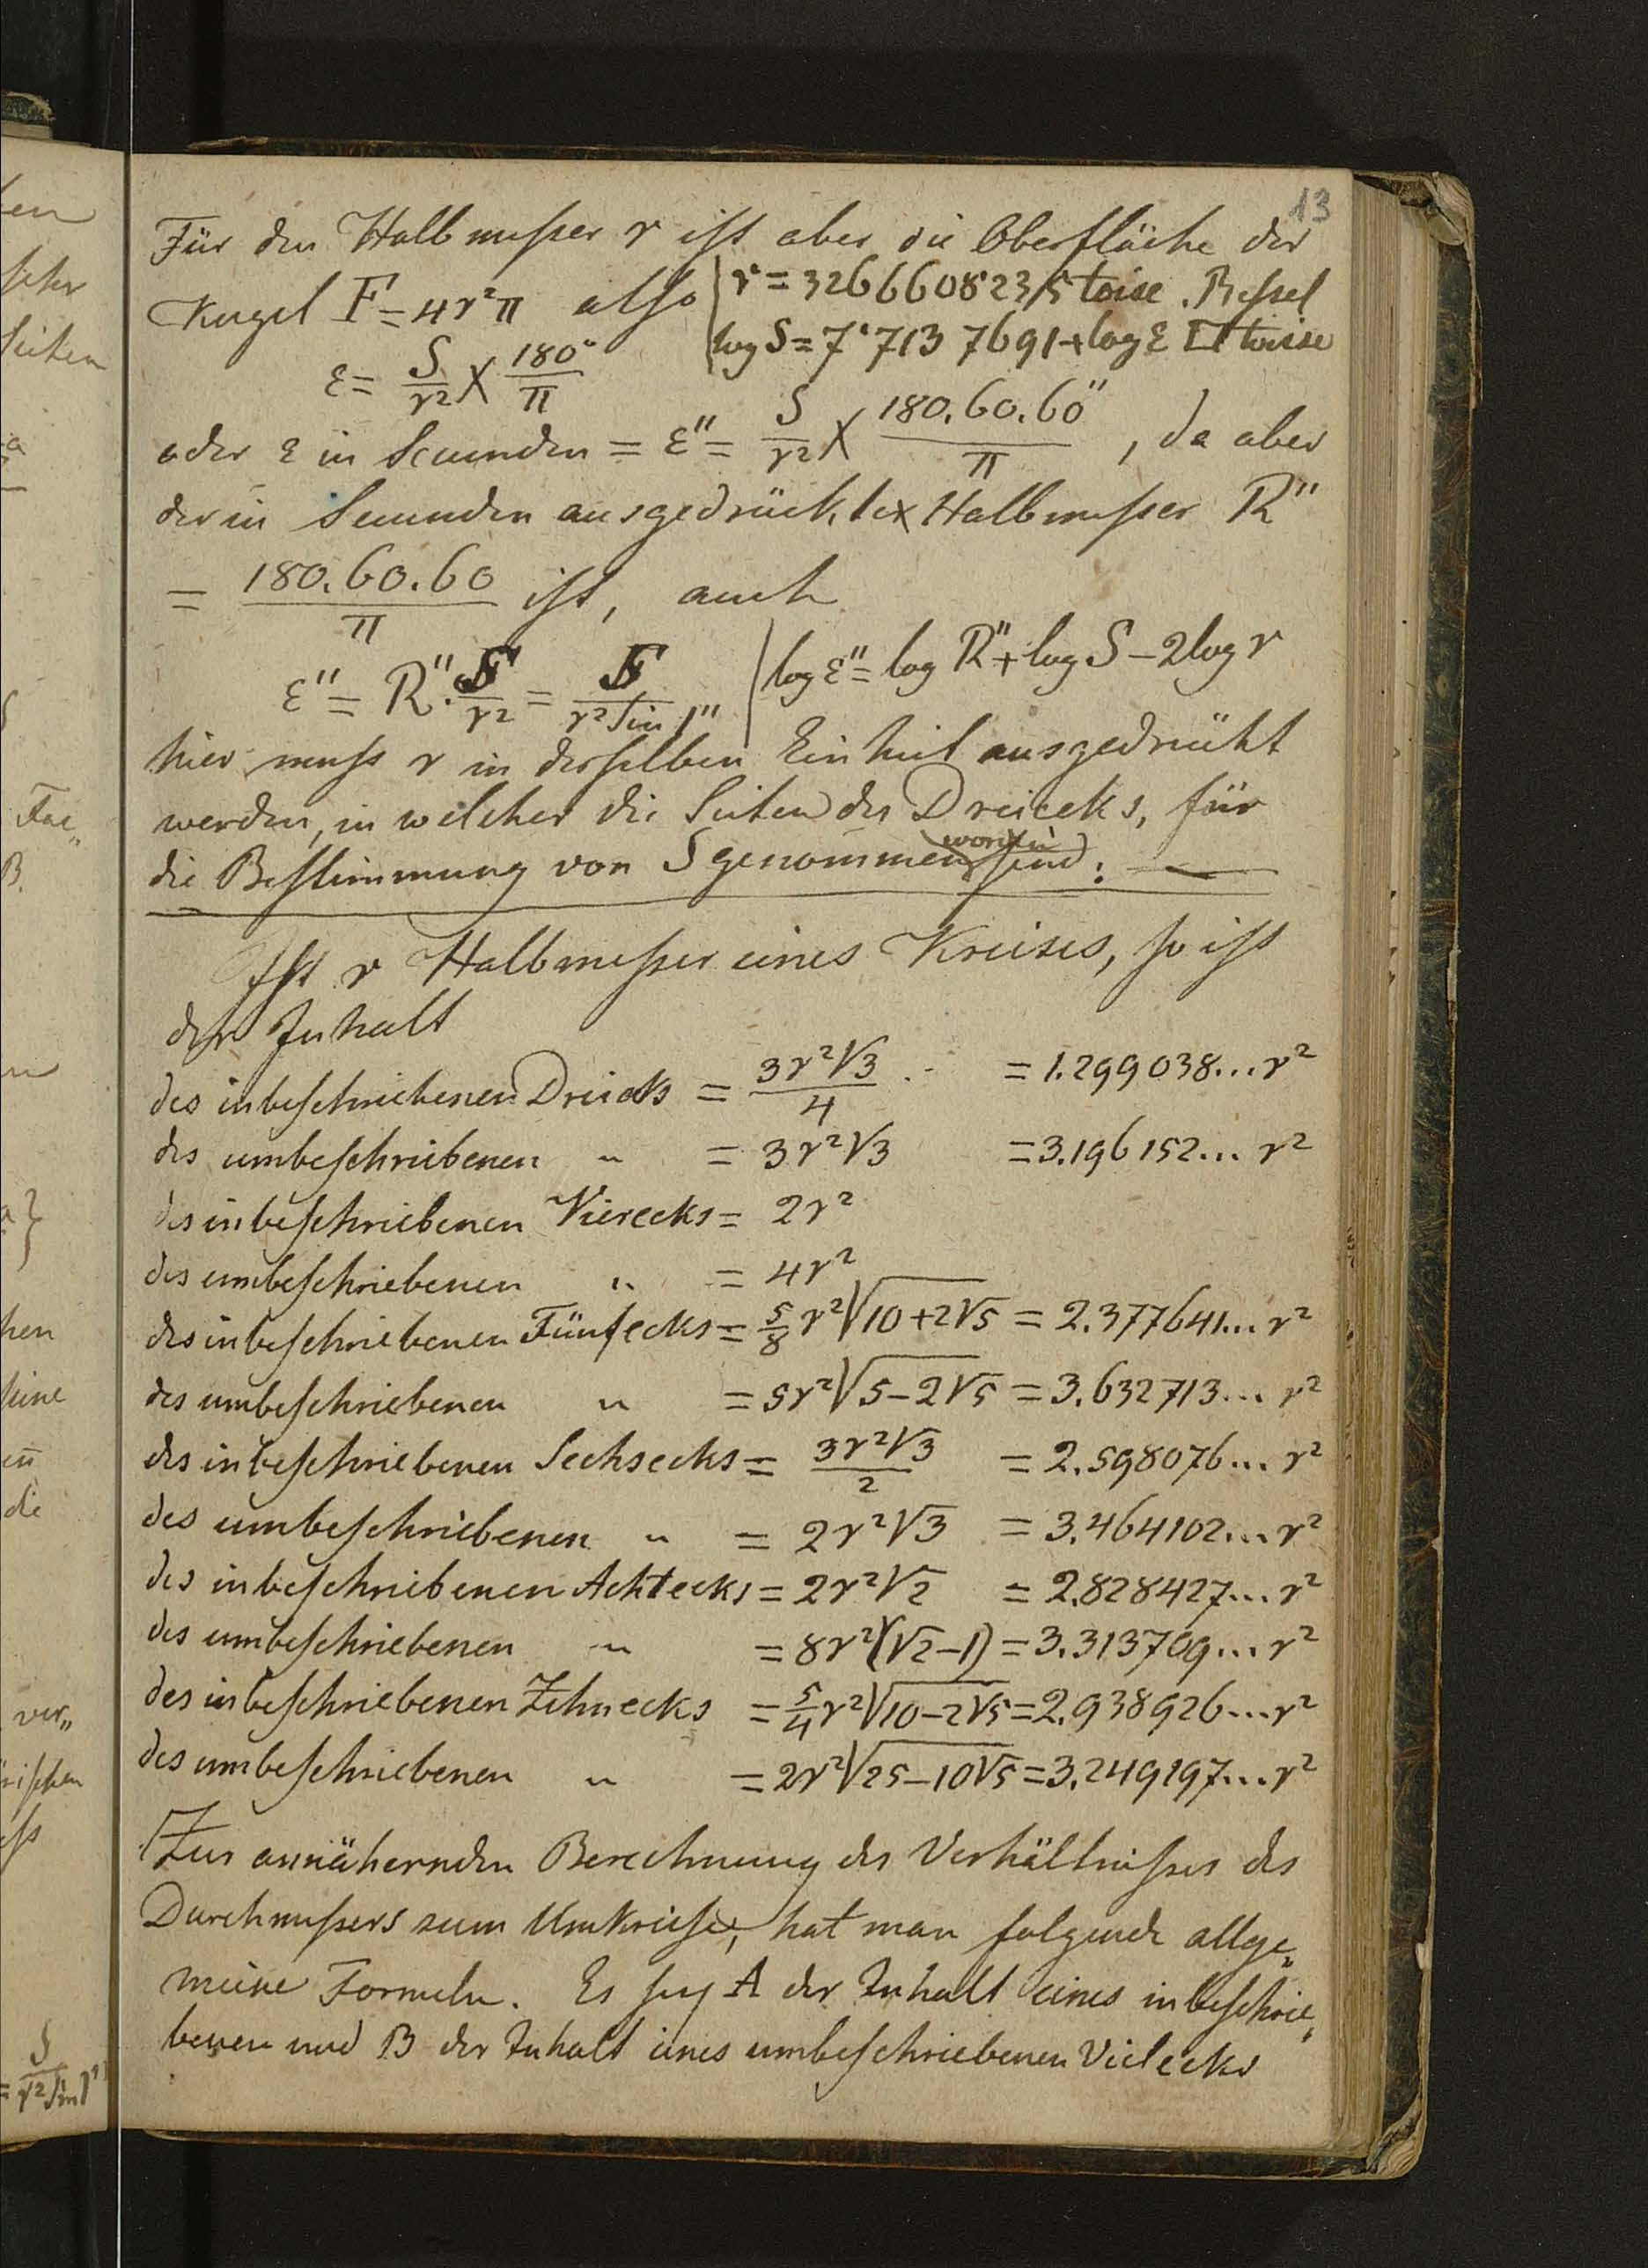 13
Für den Halbmeßer r ist aber die Oberfläche der
Kugel F = 4r²π also | r = 3266608235 toise. Bessel
log S = 7·713 7691 + log ε □ toise
ε = S/r² × 180°/π
oder ε in Secunden = ε" = S/r² × 180.60.60"/π, da aber
der in Secunden ausgedrückte Halbmeßer R"
= 180.60.60/π ist, auch
ε" = R".S/r² = S/r² sin 1" | log ε" = log R" + log S - 2 log r
hier muss r in derselben Einheit ausgedrückt
werden, in welcher die Seiten des Dreiecks, für
die Bestimmung von S genommen worden sind. —
Ist r Halbmeßer eines Kreises, so ist
der Inhalt
des inbeschriebenen Dreiecks = 3r²√3/4 = 1.299038... r²
des umbeschriebenen " = 3r²√3 = 3.196152... r²
des inbeschriebenen Vierecks = 2r²
des umbeschriebenen " = 4r²
des inbeschriebenen Fünfecks = 5/8 r²√(10+2√5) = 2.377641... r²
des umbeschriebenen " = 5r²√(5-2√5) = 3.632713... r²
des inbeschriebenen Sechsecks = 3r²√3/2 = 2.598076... r²
des umbeschriebenen " = 2r²√3 = 3.464102... r²
des inbeschriebenen Achtecks = 2r²√2 = 2.828427... r²
des umbeschriebenen " = 8r²(√2-1) = 3.313709... r²
des inbeschriebenen Zehnecks = 5/4 r²√(10-2√5) = 2.938926... r²
des umbeschriebenen " = 2r²√(25-10√5) = 3.249197... r²
Zur annähernden Berechnung des Verhältnißes des
Durchmeßers zum Umkreise, hat man folgende allge„
meine Formeln. Es sey A der Inhalt eines inbeschrie„
benen und B der Inhalt eines umbeschriebenen Vielecks